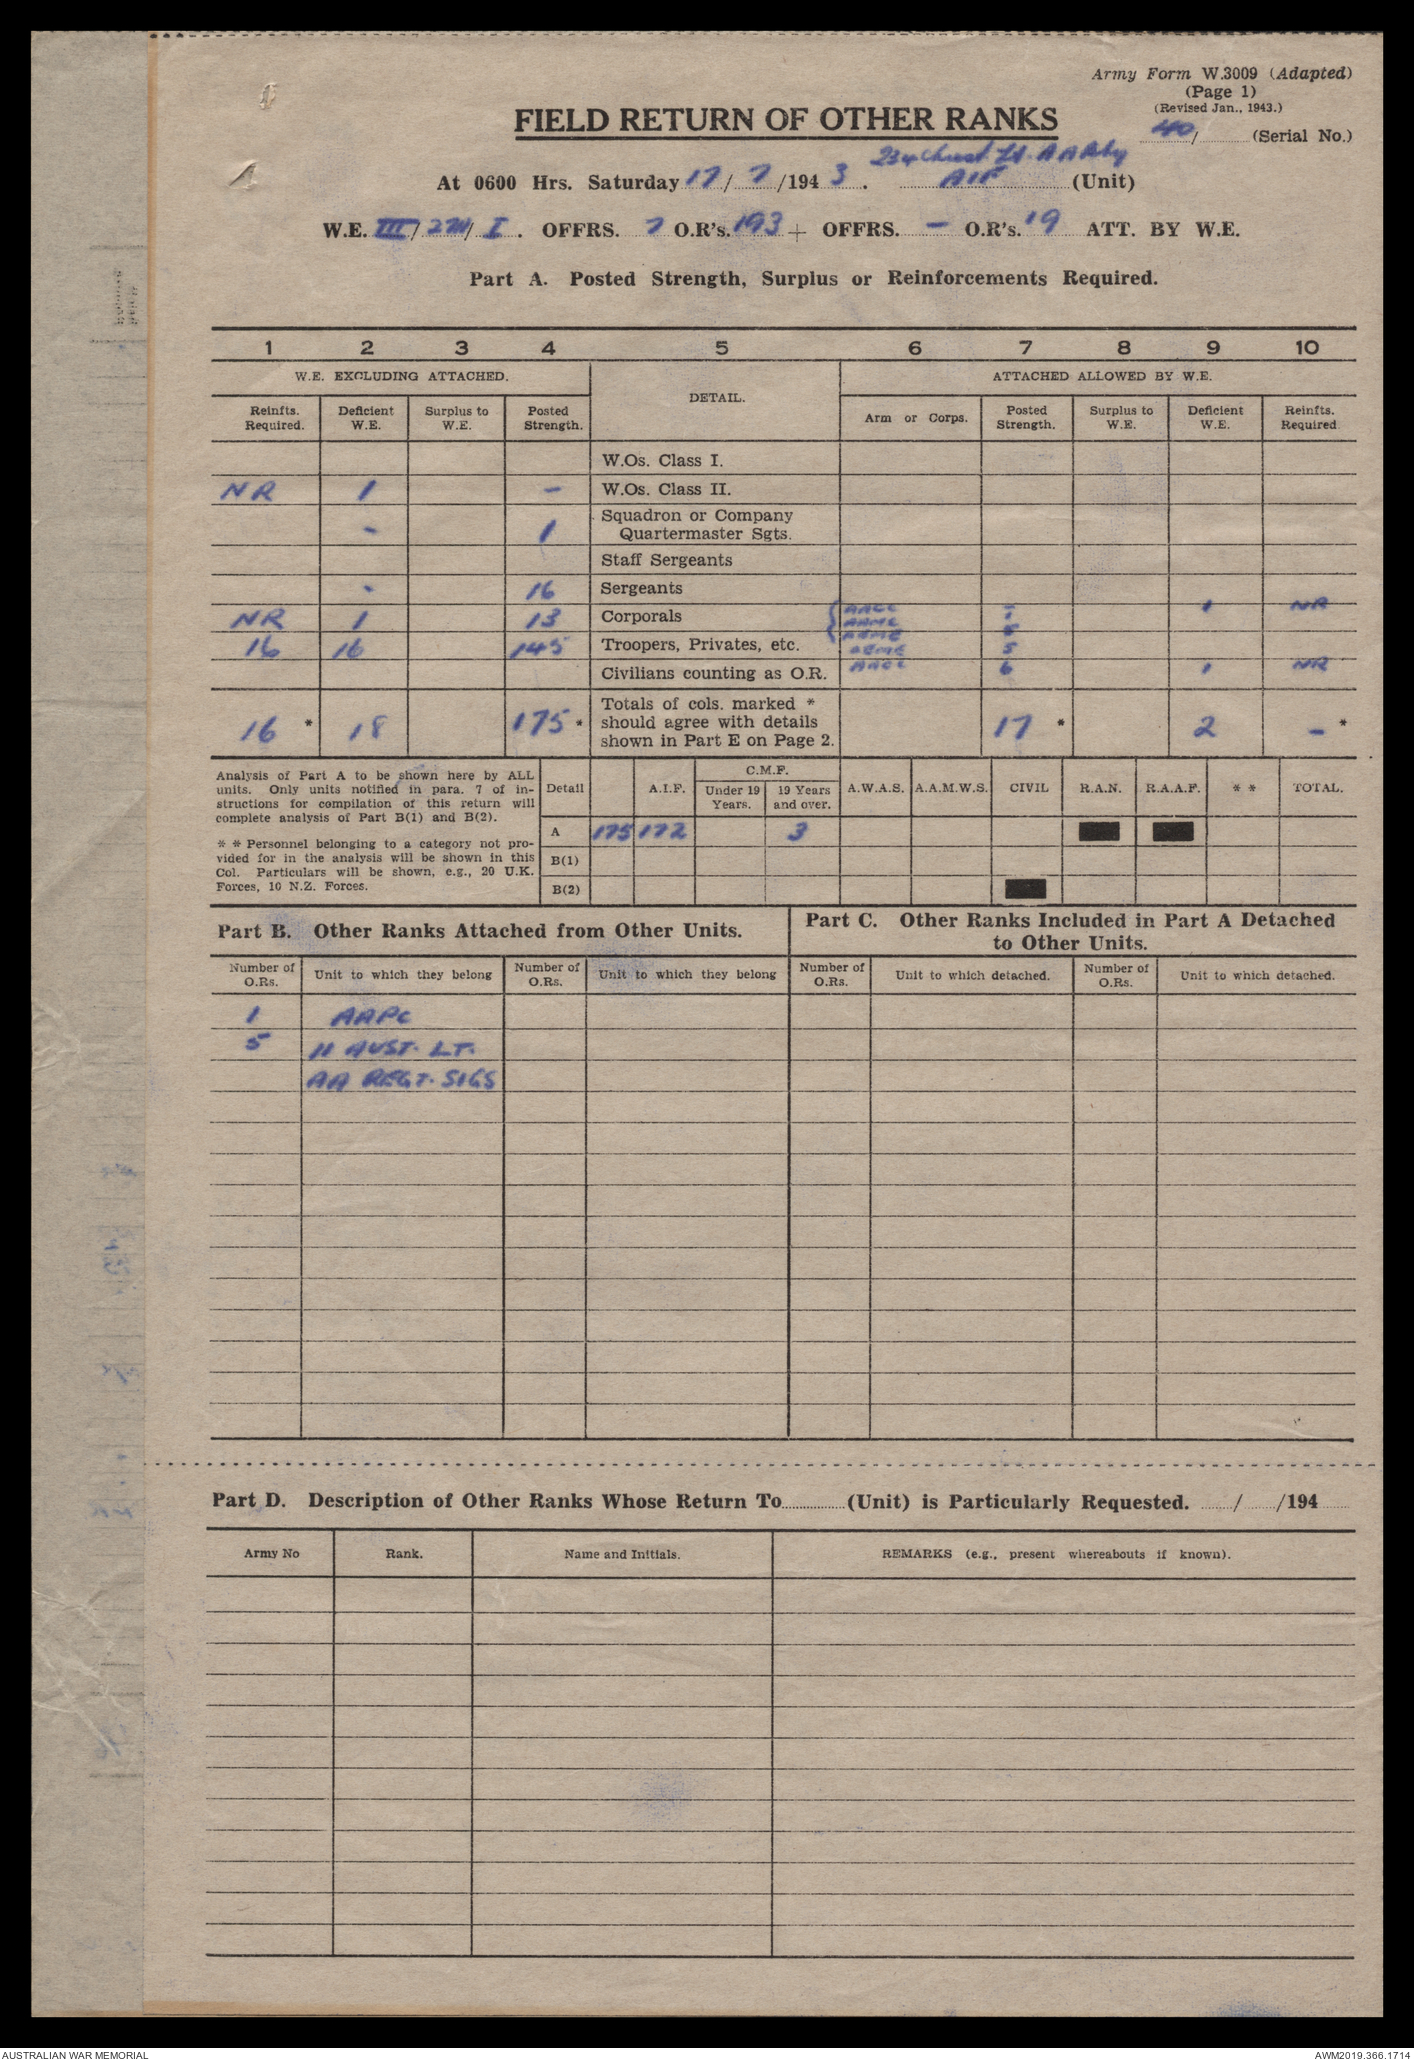 Army Form W.3009 (Adapted)
(Page 1)
(Revised Jan., 1943.)
FIELD RETURN OF OTHER RANKS
40/ (Serial No.)
Lt. AA Bty
At 0600 Hrs. Saturday 17/7/1943. AIF (Unit)
W.E. III/ / I. OFFRS. 7 O.R's. 193 + OFFRS. – O.R's. 19 ATT. BY W.E.
Part A. Posted Strength, Surplus or Reinforcements Required.
1 2 3 4 5 6 7 8 9 10
W.E. EXCLUDING ATTACHED. DETAIL. ATTACHED ALLOWED BY W.E.
Reinfts. Required. Deficient W.E. Surplus to W.E. Posted Strength. Arm or Corps. Posted Strength. Surplus to W.E. Deficient W.E. Reinfts. Required.
W.Os. Class I.
NR 1 – W.Os. Class II.
- 1 Squadron or Company Quartermaster Sgts.
Staff Sergeants
- 16 Sergeants
NR 1 13 Corporals AACC – 1 NR
AAMC 1
16 16 145 Troopers, Privates, etc. AEME 5
Civilians counting as O.R. AACC 6 1 NR
16 * 18 175 * Totals of cols. marked * should agree with details shown in Part E on Page 2. 17 * 2 – *
Analysis of Part A to be shown here by ALL
units. Only units notified in para. 7 of in-
structions for compilation of this return will
complete analysis of Part B(1) and B(2).
* * Personnel belonging to a category not pro-
vided for in the analysis will be shown in this
Col. Particulars will be shown, e.g., 20 U.K.
Forces, 10 N.Z. Forces.
Detail A.I.F. C.M.F. Under 19 Years. 19 Years and over. A.W.A.S. A.A.M.W.S. CIVIL R.A.N. R.A.A.F. * * TOTAL.
A 175 172 3
B(1)
B(2)
Part B. Other Ranks Attached from Other Units.
Part C. Other Ranks Included in Part A Detached
to Other Units.
Number of O.Rs. Unit to which they belong Number of O.Rs. Unit to which they belong Number of O.Rs. Unit to which detached. Number of O.Rs. Unit to which detached.
1 AAPC
5 11 AUST. LT.
AA REGT. SIGS
Part D. Description of Other Ranks Whose Return To (Unit) is Particularly Requested. / /194
Army No Rank. Name and Initials. REMARKS (e.g., present whereabouts if known).
AUSTRALIAN WAR MEMORIAL
AWM2019.366.1714